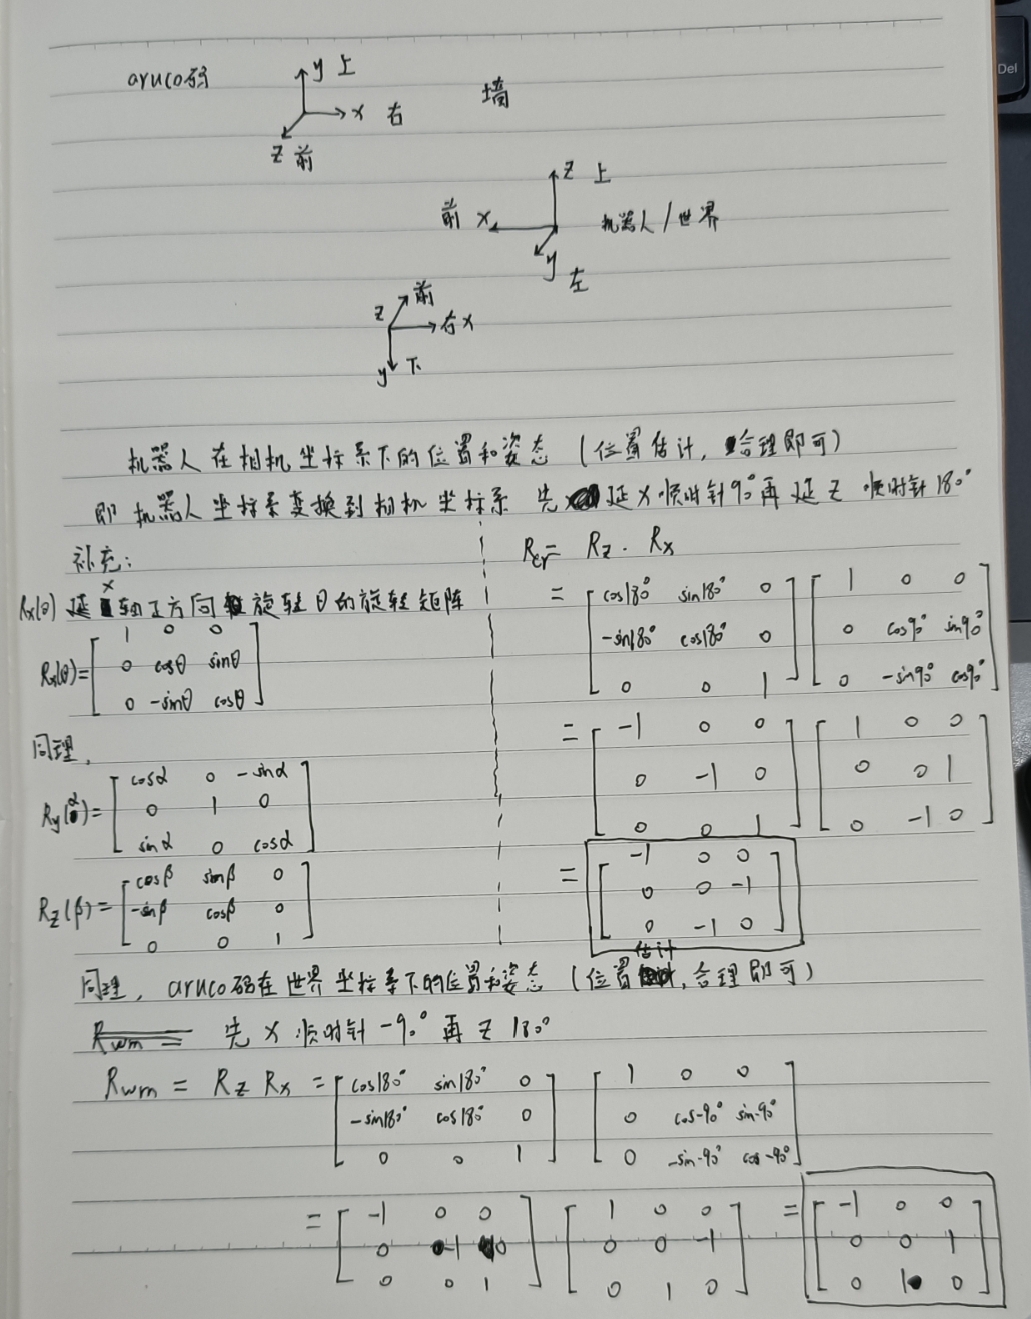 Del
aruco码
y 上
x 右
z 前
墙
z 上
前 x
机器人/世界
y 左
z 前
右 x
y 下
机器人在相机坐标系下的位置和姿态 (位置估计, 合理即可)
即机器人坐标系变换到相机坐标系 先延X顺时针90°再延Z顺时针180°
补充:
Rx(θ) 延x轴正方向旋转θ的旋转矩阵
Rx(θ)= [ 1 0 0
0 cosθ sinθ
0 -sinθ cosθ ]
同理,
Ry(α)= [ cosα 0 -sinα
0 1 0
sinα 0 cosα ]
Rz(β)= [ cosβ sinβ 0
-sinβ cosβ 0
0 0 1 ]
Rcr= Rz · Rx
= [ cos180° sin180° 0 ] [ 1 0 0 ]
[ -sin180° cos180° 0 ] [ 0 cos90° sin90° ]
[ 0 0 1 ] [ 0 -sin90° cos90° ]
= [ -1 0 0 ] [ 1 0 0 ]
[ 0 -1 0 ] [ 0 0 1 ]
[ 0 0 1 ] [ 0 -1 0 ]
= [ -1 0 0
0 0 -1
0 -1 0 ]
同理, aruco码在世界坐标系下的位置和姿态 (位置估计, 合理即可)
Rwm = 先X顺时针-90°再Z 180°
Rwm = Rz Rx = [ cos180° sin180° 0 ] [ 1 0 0 ]
[ -sin180° cos180° 0 ] [ 0 cos-90° sin-90° ]
[ 0 0 1 ] [ 0 -sin-90° cos-90° ]
= [ -1 0 0 ] [ 1 0 0 ] = [ -1 0 0 ]
[ 0 -1 0 ] [ 0 0 -1 ] [ 0 0 1 ]
[ 0 0 1 ] [ 0 1 0 ] [ 0 1 0 ]